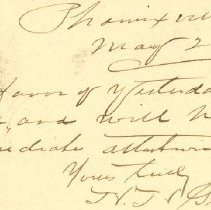 Phoenixvil
May 2
favor of yesterda
and will h
mediate attention
Yours truly